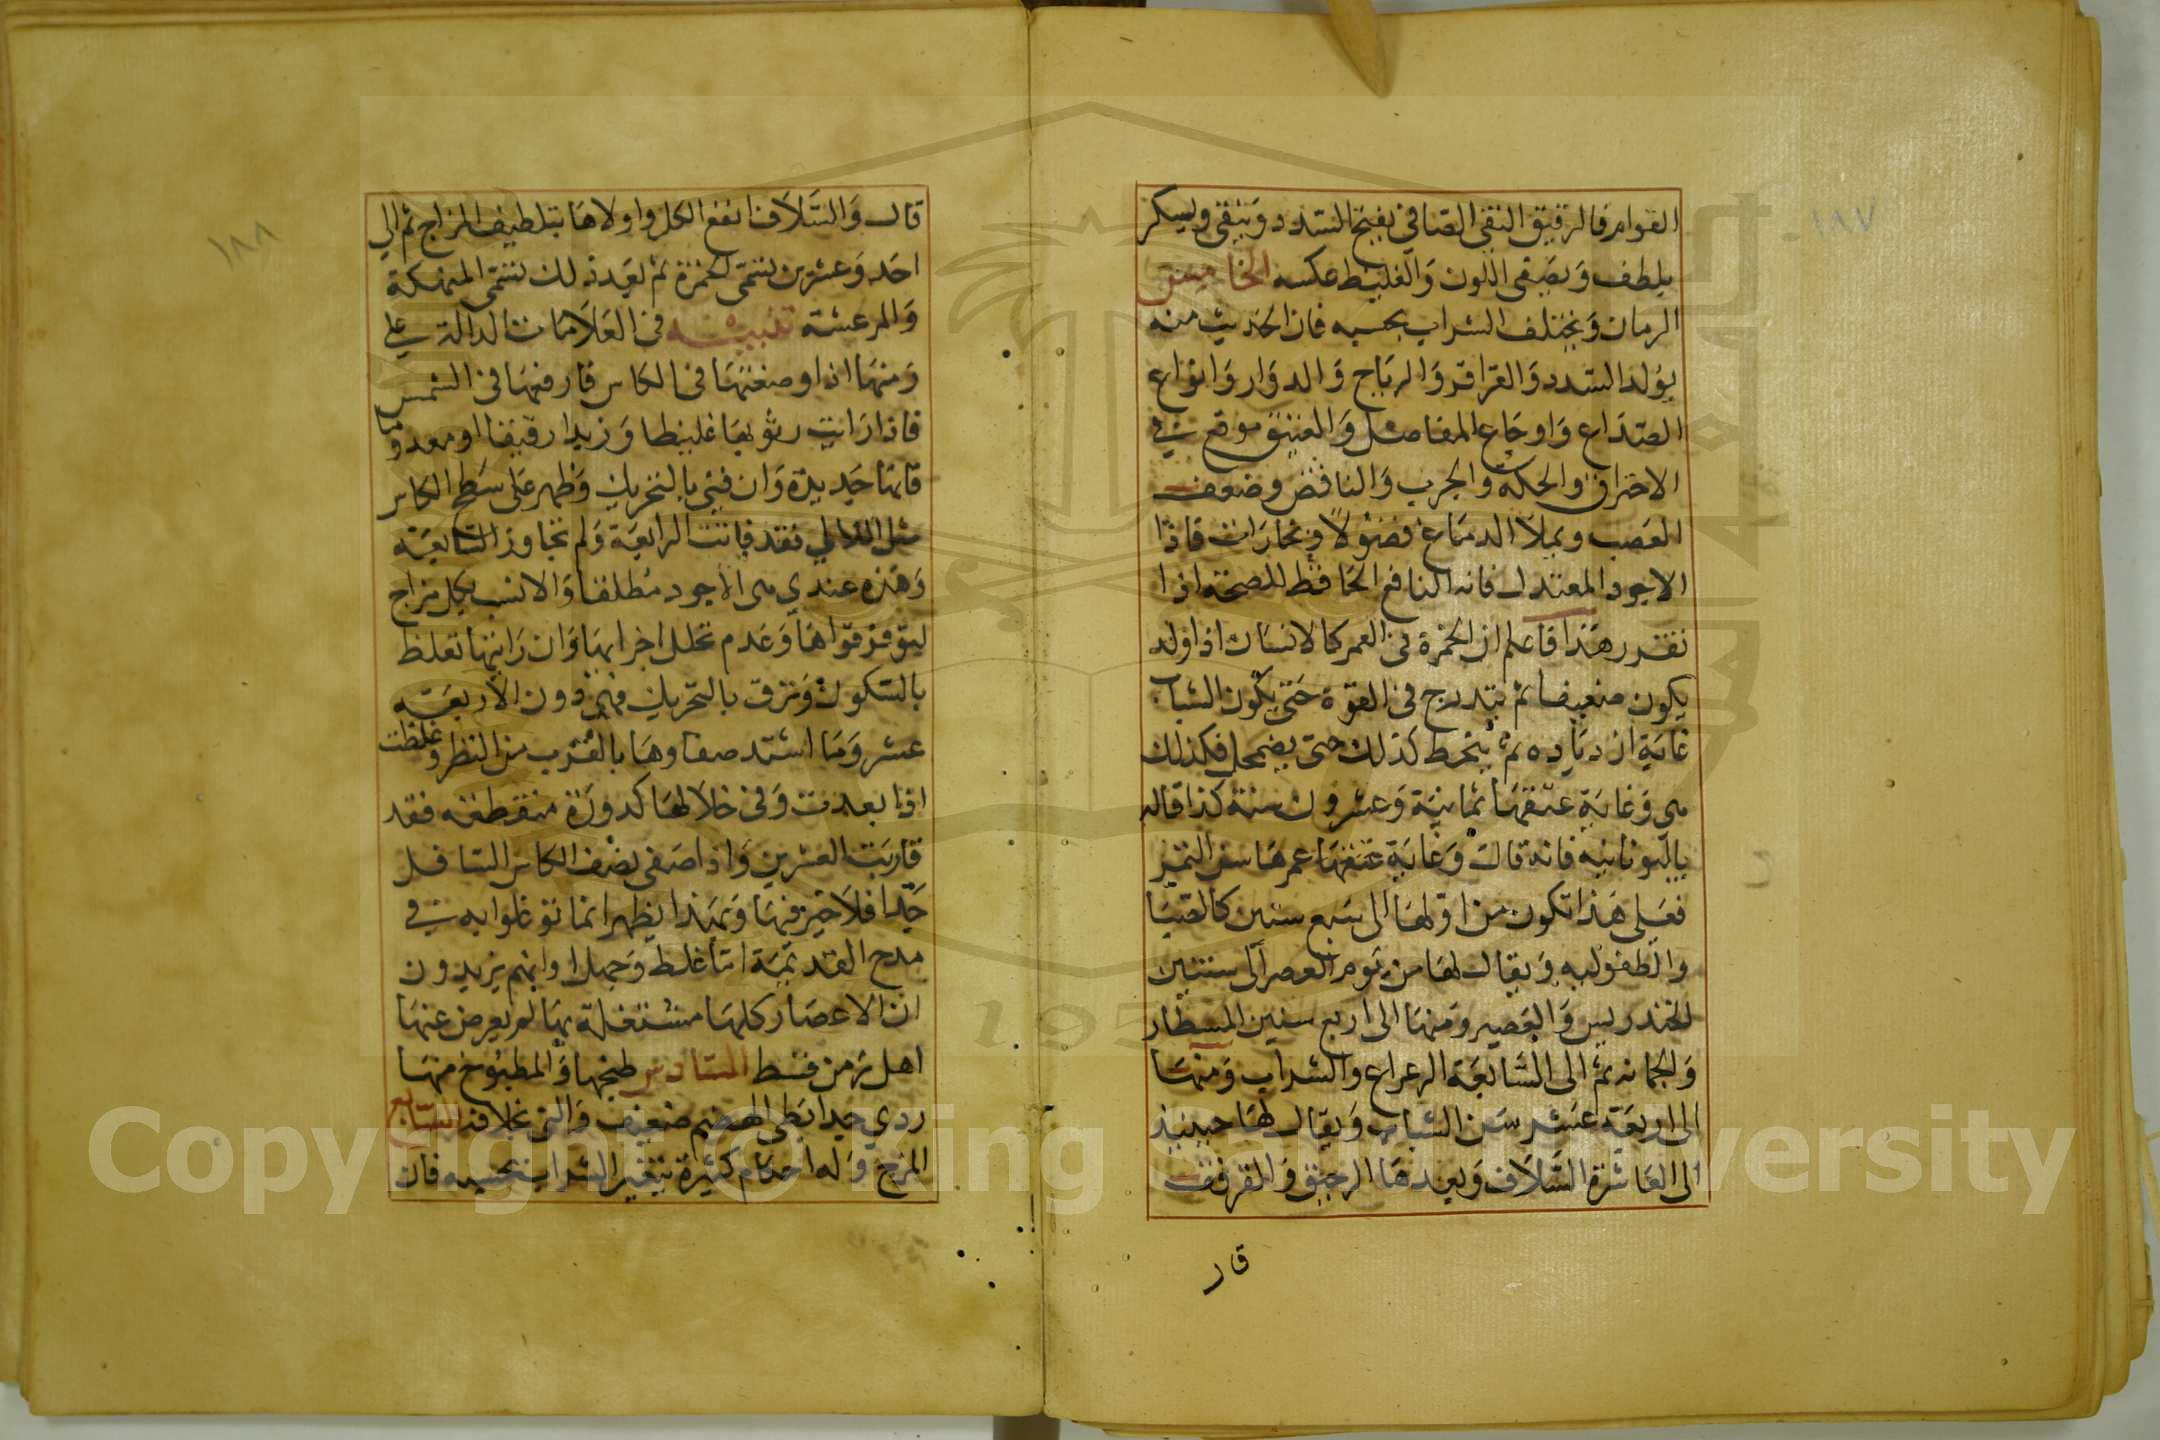 ١٨٧
القوام فالرقيق النقى الصافي يفتح السدد وينقى ويسكر
يلطف ويصفى اللون والغليظ عكسه الخامس
الزمان ويختلف الشراب بحسبه فان الحديث منه
يولد السدد والقراقر والرياح والدوار وانواع
الصداع واوجاع المفاصل والعتيق يوقع في
الاحتراق والحكة والجرب والنافض وضعف
العصب ويملا الدماغ فضولا وبخارات فاذا
الاجود المعتدل فانه النافع الحافظ للصحة اذا
تقرر هذا فاعلم ان الخمرة في العمر كالانسان اذا ولد
يكون ضعيفا ثم يتدرج في القوة حتى يكون الشباب
غاية ازدياده ثم ينحط كذلك حتى يضمحل فكذلك
هى وغاية عتقها ثمانية وعشرون سنة كذا قاله
باليونانيه فانه قال وغاية عتقها عمرها سن التميز
فعلى هذا تكون من اولها الى سبع سنين كالصبيا
والطفوليه ويقال لها من يوم العصر الى سنتين
الخندريس والعصير ومنها الى اربع سنين المسطار
والجمانه ثم الى السابعة الرعراع والشراب ومنها
الى اربعة عشر سن الشباب ويقال لها حينيذ
الى العاشرة السلاف وبعدها الرحيق والقرقف
قال
١٨٨
قال والسلاف انفع الكل واولاها بتلطيف المزاج ثم الى
احد وعشرين تسمى الخمرة ثم بعد ذلك تسمى المنهكة
والمرعشة تنبيه في العلامات الدالة على
ومنها اذا وضعتها في الكاس فارفعها في الشمس
فاذا رايت رسوبها غليظا وزبدا رقيقا او معدوما
فانها جديدة وان فنى بالتحريك وظهر على سطح الكاس
مثل اللالي فقد فاتت الرابعة ولم تجاوز السابعة
وهذه عندي هى الاجود مطلقا والانسب بكل مزاج
ليتوفر قواها وعدم تحلل اجزايها وان رايتها تغلظ
بالسكون وترق بالتحريك فهى دون الاربعة
عشر وما اشتد صفاوها بالقرب من النظر وغلظت
اذا بعدت وفى خلالها كدورة منقطعه فقد
قاربت العشرين واذا صفى نصف الكاس السافل
جدا فلا خير فيها وبهذا يظهر انما توغلوا به في
مدح القديمة اما غلط وجهلا وانهم يريدون
ان الاعصار كلها مشتغلة بها لم يعرض عنها
اهل زمن قسط السادس طبخها والمطبوخ منها
ردي جدا بطي الهضم ضعيف والنى بخلافه السابع
المزج وله احكام كثيرة يتغير الشراب بحسبه فان
Copyright © King Saud University
195